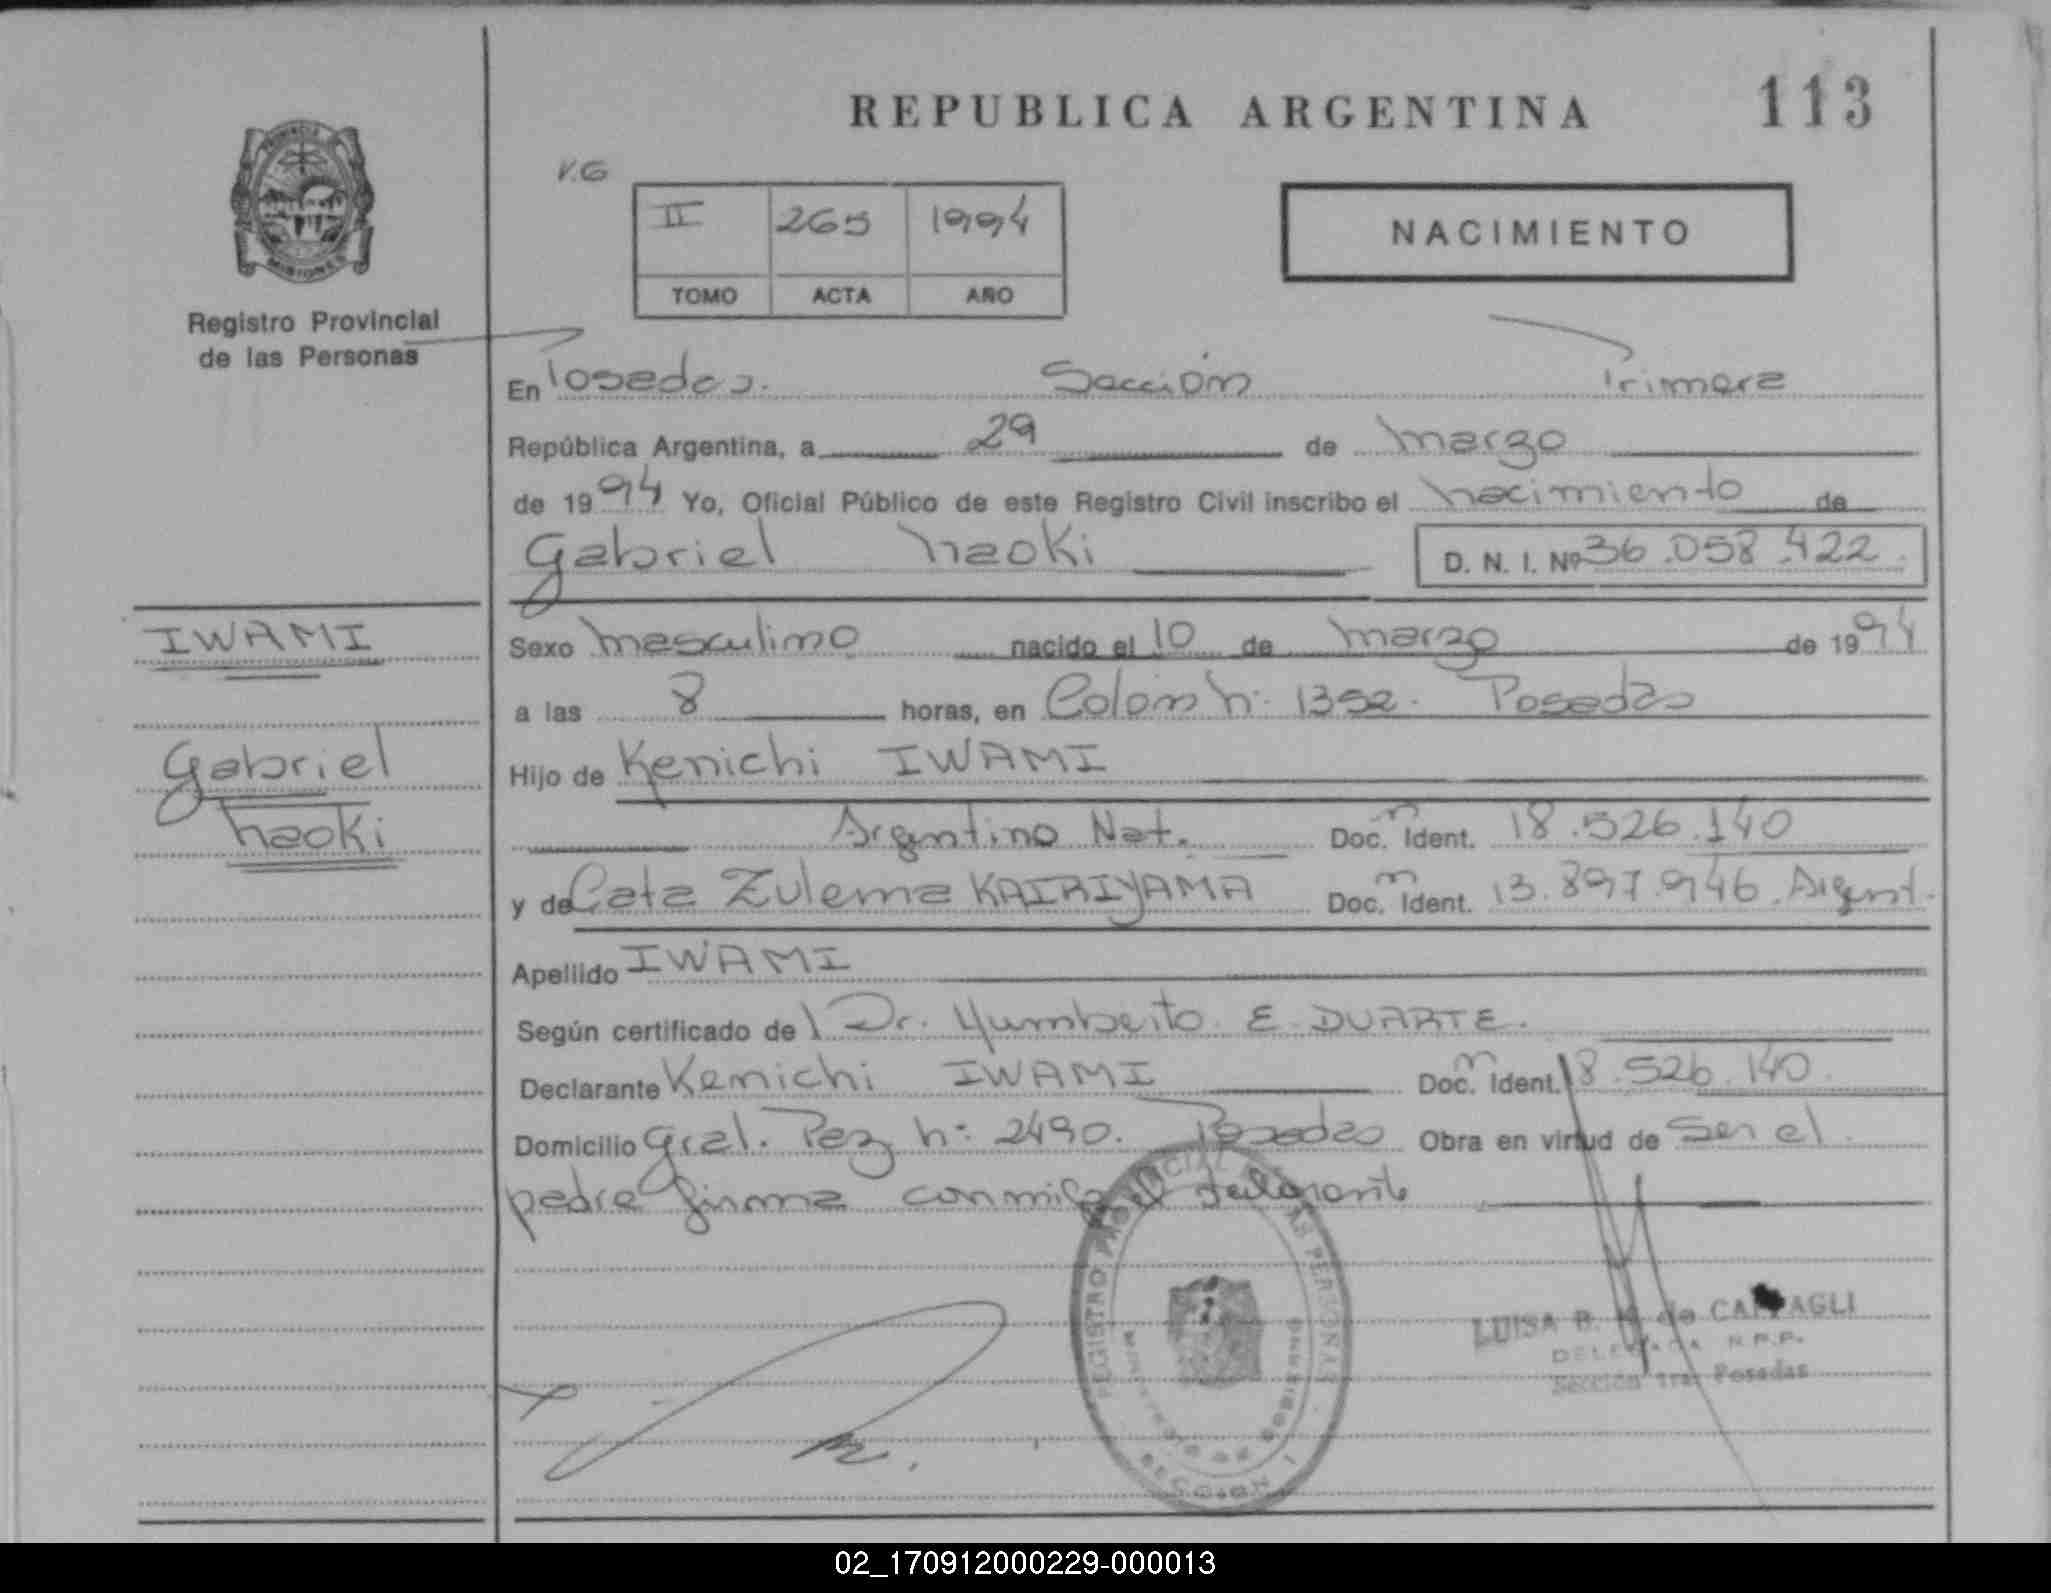 REPUBLICA ARGENTINA
113
V.G
II 265 1994
TOMO ACTA AÑO
NACIMIENTO
PROVINCIA
MISIONES
Registro Provincial
de las Personas
En Posadas. Sección Primera
República Argentina, a 29 de marzo
de 1994 Yo, Oficial Público de este Registro Civil inscribo el nacimiento de
Gabriel Naoki
D. N. I. Nº 36.058.422.
IWAMI
Gabriel
Naoki
Sexo masculino nacido el 10 de marzo de 1994
a las 8 horas, en Colón Nº 1352. Posadas
Hijo de Kenichi IWAMI
Argentino Nat. Doc. Ident. 18.526.140
y de Cata Zulema KAIRIYAMA Doc. Ident. 13.897.946. Argent.
Apellido IWAMI
Según certificado de Dr. Humberto E. DUARTE.
Declarante Kenichi IWAMI Doc. Ident. 18.526.140.
Domicilio Gral. Paz Nº 2490. Posadas Obra en virtud de Ser el
padre firma conmigo el
REGISTRO PROVINCIAL DE LAS PERSONAS
MINISTERIO DE GOBIERNO
SECCION 1
LUISA B. de CAPPAGLI
DELEGADA R.P.P.
Sección 1ra. Posadas
02_170912000229-000013